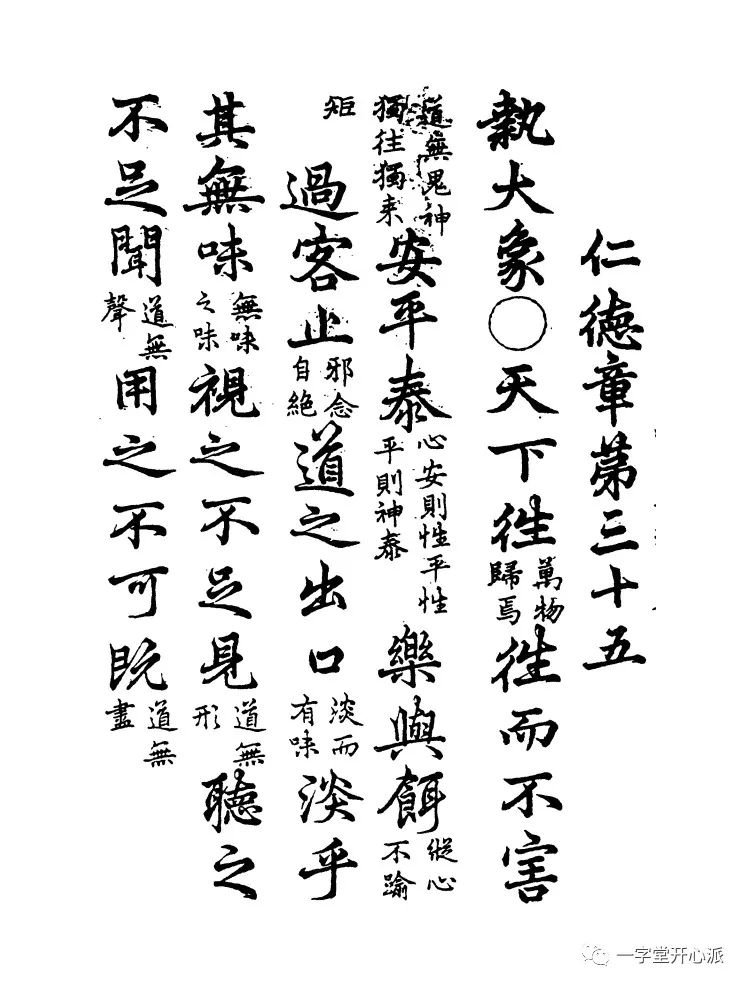 仁徳章苐三十五
執大象○天下徃萬物歸焉徃而不害
道無鬼神獨往獨来安平泰心安則性平性平則神泰樂與餌縱心不踰
矩過客止邪念自絶道之出口淡而有味淡乎
其無味無味之味視之不足見道無形聽之
不足聞道無聲用之不可既道無盡
一字堂开心派